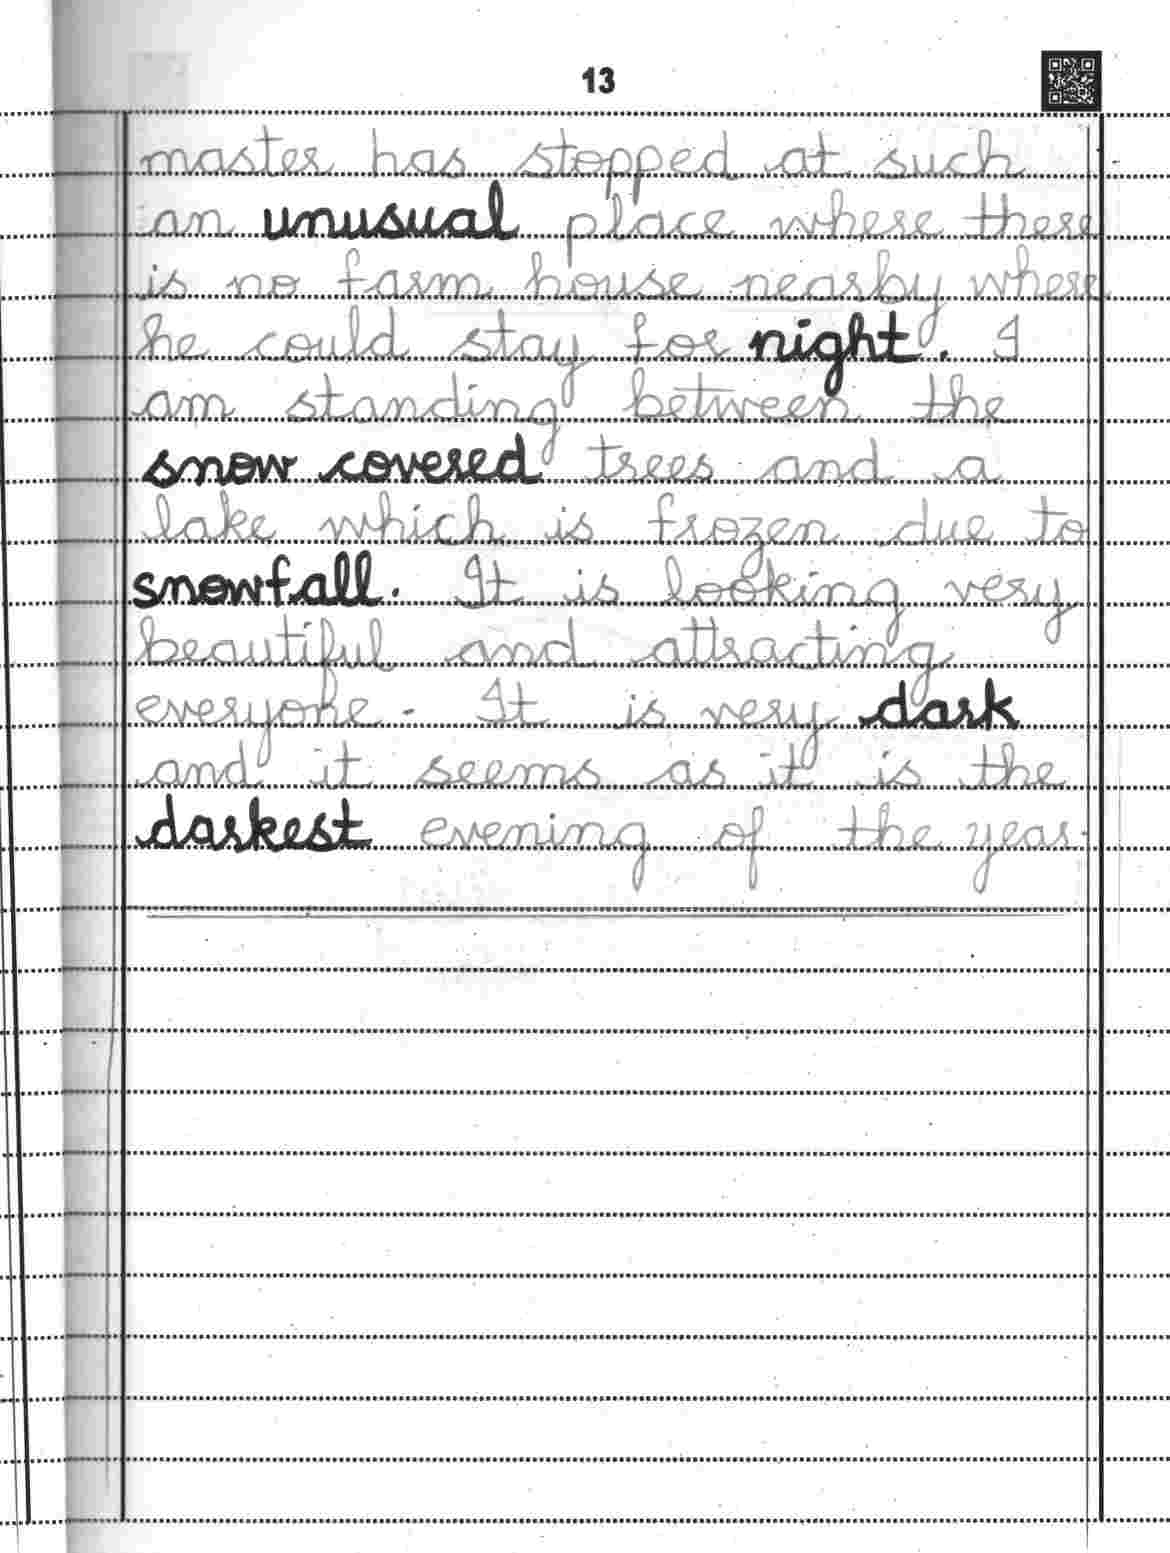 13
master has stopped at such
an unusual place where there
is no farm house nearby where
he could stay for night. I
am standing between the
snow covered trees and a
lake which is frozen due to
snowfall. It is looking very
beautiful and attracting
everyone. It is very dark
and it seems as it is the
darkest evening of the year.